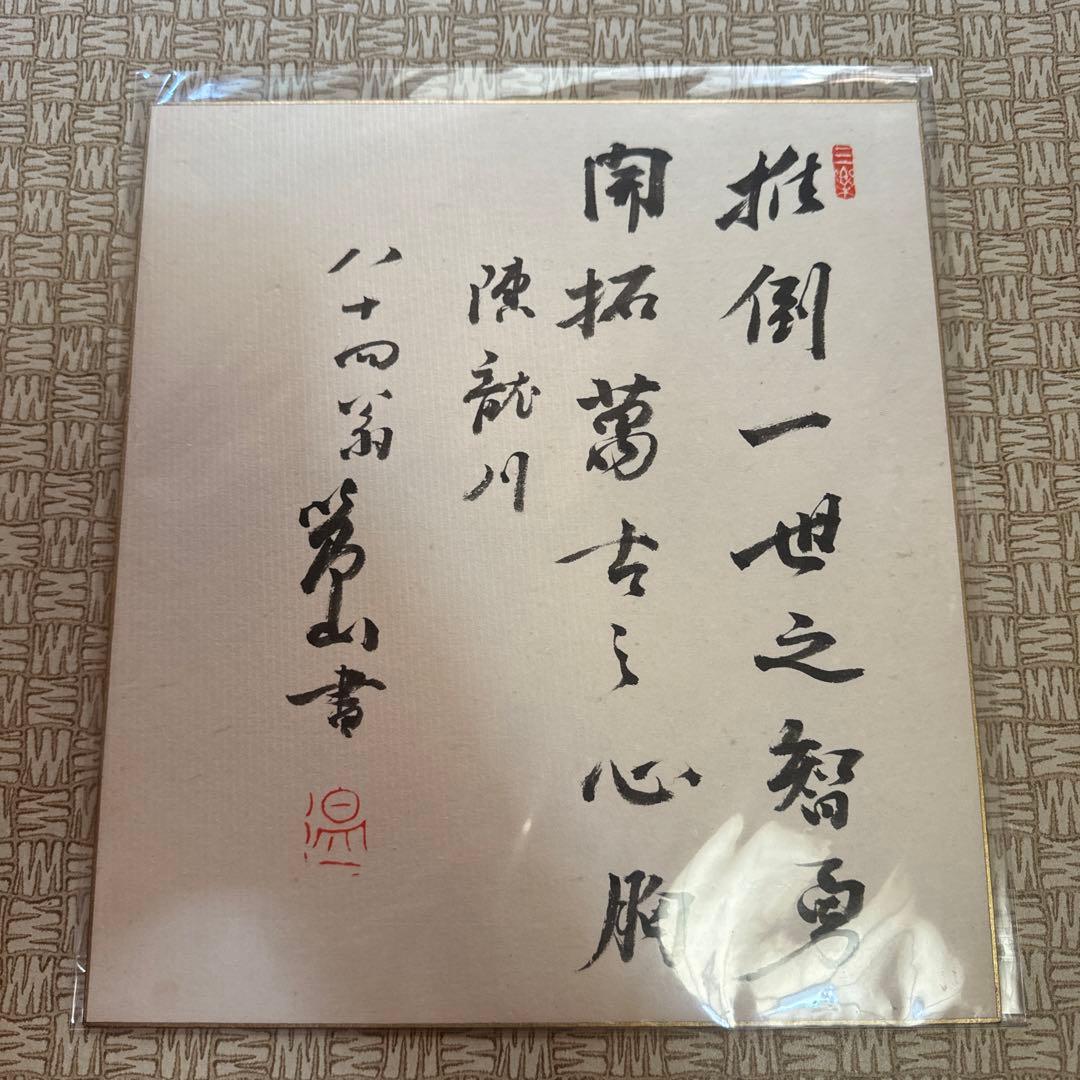 三樂
推倒一世之智勇
開拓萬古之心胸
陳龍川
八十四翁 山書